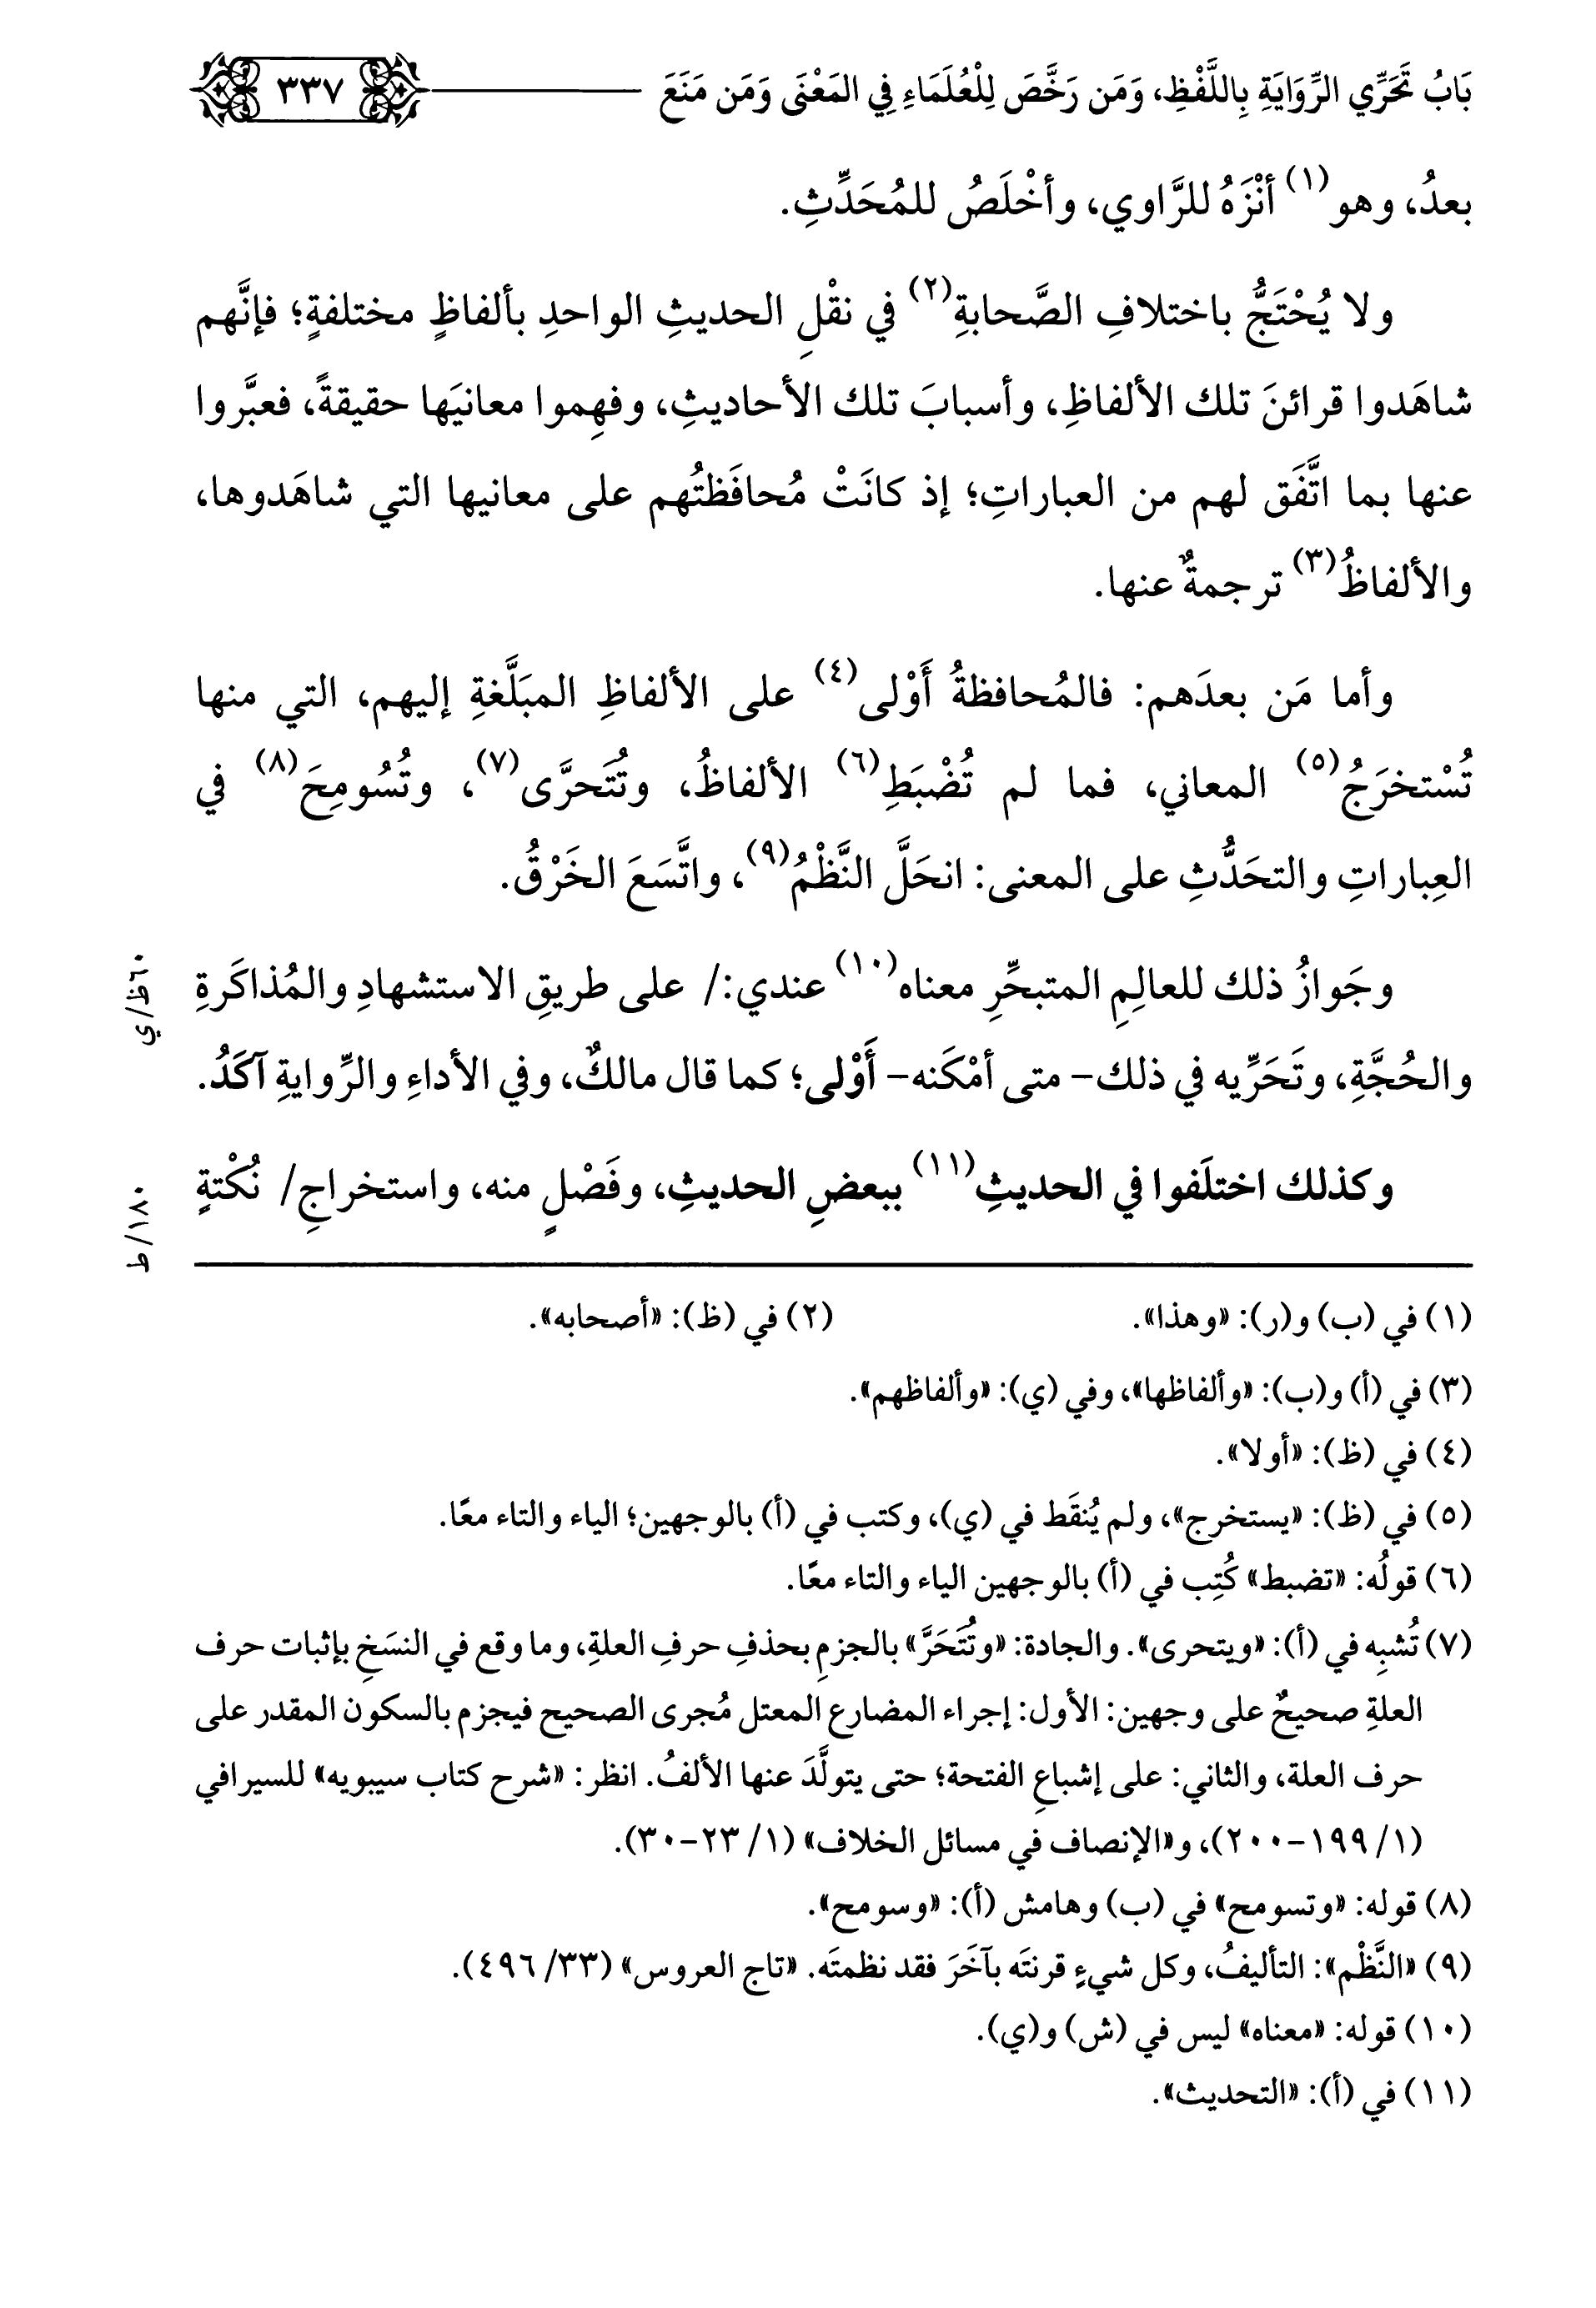 بَابُ تَحَرِّي الرِّوَايَةِ بِاللَّفْظِ، وَمَن رَخَّصَ لِلْعُلَمَاءِ فِي المَعْنَى وَمَن مَنَعَ ٣٣٧
بعدُ، وهو(١) أنْزَهُ للرَّاوي، وأخْلَصُ للمُحَدِّثِ.
ولا يُحْتَجُّ باختلافِ الصَّحابةِ(٢) في نقْلِ الحديثِ الواحدِ بألفاظٍ مختلفةٍ؛ فإنَّهم
شاهَدوا قرائنَ تلك الألفاظِ، وأسبابَ تلك الأحاديثِ، وفهِموا معانيَها حقيقةً، فعبَّروا
عنها بما اتَّفَق لهم من العباراتِ؛ إذ كانَتْ مُحافَظتُهم على معانيها التي شاهَدوها،
والألفاظُ(٣) ترجمةٌ عنها.
وأما مَن بعدَهم: فالمُحافظةُ أَوْلى(٤) على الألفاظِ المبَلَّغةِ إليهم، التي منها
تُسْتخرَجُ(٥) المعاني، فما لم تُضْبَطِ(٦) الألفاظُ، وتُتَحرَّى(٧)، وتُسُومِحَ(٨) في
العِباراتِ والتحَدُّثِ على المعنى: انحَلَّ النَّظْمُ(٩)، واتَّسَعَ الخَرْقُ.
وجَوازُ ذلك للعالِمِ المتبحِّرِ معناه(١٠) عندي:/ على طريقِ الاستشهادِ والمُذاكَرةِ
٦٠ظ/ي
والحُجَّةِ، وتَحَرِّيه في ذلك- متى أمْكَنه- أَوْلى؛ كما قال مالكٌ، وفي الأداءِ والرِّوايةِ آكَدُ.
وكذلك اختلَفوا في الحديثِ(١١) ببعضِ الحديثِ، وفَصْلٍ منه، واستخراجِ/ نُكْتةٍ
(١) في (ب) و(ر): «وهذا». (٢) في (ظ): «أصحابه».
(٣) في (أ) و(ب): «وألفاظها»، وفي (ي): «وألفاظهم».
(٤) في (ظ): «أولا».
(٥) في (ظ): «يستخرج»، ولم يُنقَط في (ي)، وكتب في (أ) بالوجهين؛ الياء والتاء معًا.
(٦) قولُه: «تضبط» كُتِب في (أ) بالوجهين الياء والتاء معًا.
(٧) تُشبِه في (أ): «ويتحرى». والجادة: «وتُتَحَرَّ» بالجزمِ بحذفِ حرفِ العلةِ، وما وقع في النسَخِ بإثبات حرف
العلةِ صحيحٌ على وجهين: الأول: إجراء المضارع المعتل مُجرى الصحيح فيجزم بالسكون المقدر على
حرف العلة، والثاني: على إشباعِ الفتحة؛ حتى يتولَّدَ عنها الألفُ. انظر: «شرح كتاب سيبويه» للسيرافي
(١/ ١٩٩-٢٠٠)، و«الإنصاف في مسائل الخلاف» (١/ ٢٣-٣٠).
(٨) قوله: «وتسومح» في (ب) وهامش (أ): «وسومح».
(٩) «النَّظْم»: التأليفُ، وكل شيءٍ قرنتَه بآخَرَ فقد نظمتَه. «تاج العروس» (٣٣/ ٤٩٦).
(١٠) قوله: «معناه» ليس في (ش) و(ي).
(١١) في (أ): «التحديث».